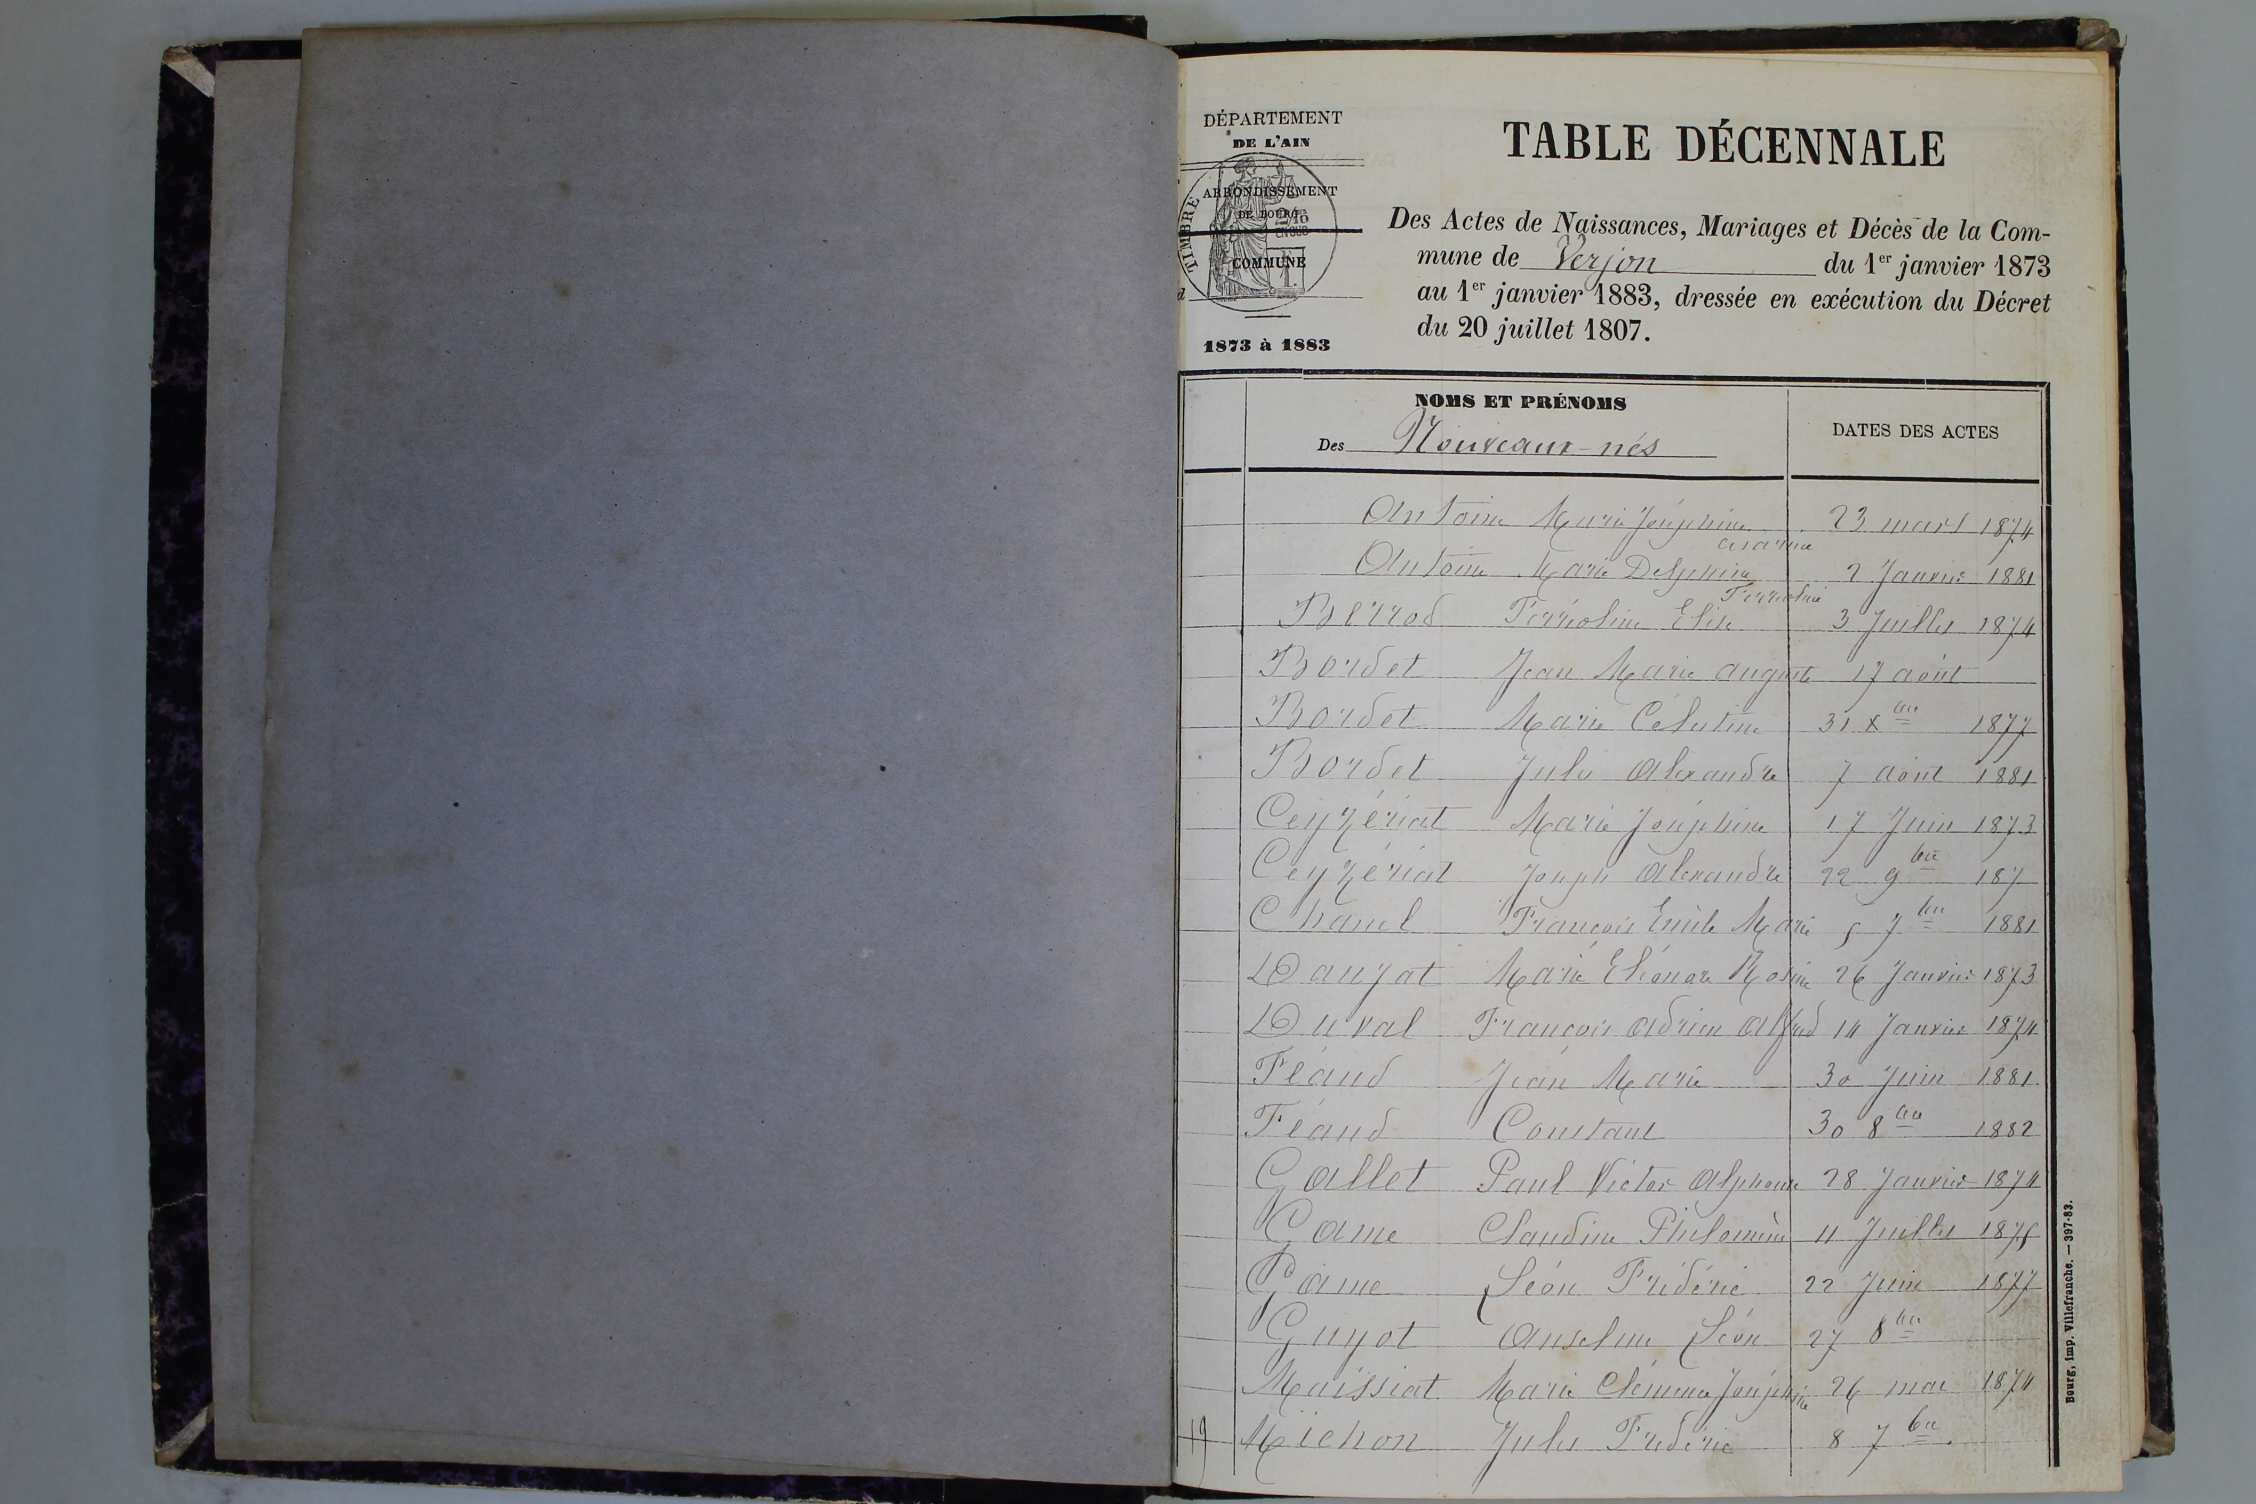 DÉPARTEMENT
DE L'AIN
TIMBRE
ARRONDISSEMENT
DE BOURG
COMMUNE
d
1873 à 1883
TABLE DÉCENNALE
Des Actes de Naissances, Mariages et Décès de la Com-
mune de Verjon du 1er janvier 1873
au 1er janvier 1883, dressée en exécution du Décret
du 20 juillet 1807.
NOMS ET PRÉNOMS
Des Nouveaux-nés
DATES DES ACTES
Antoine Marie Joséphine 23 mars 1874
Antoine Marie Delphine 2 Janvier 1881
Berrod Ferréoline Elise 3 Juillet 1874
Bordet Jean Marie Auguste 17 août
Bordet Marie Célestine 31 xbre 1877
Bordet Jules Alexandre 7 août 1881
Ceyzériat Marie Joséphine 17 Juin 1873
Ceyzériat Joseph Alexandre 22 9bre 187
Chanel François Emile Marie 5 7bre 1881
Daujat Marie Eléonore Rosine 26 Janvier 1873
Duval François Adrien Alfred 14 Janvier 1874
Féaud Jean Marie 30 Juin 1881
Féaud Constant 30 8bre 1882
Gallet Paul Victor Alphonse 28 Janvier 1874
Game Claudine Philomène 11 Juillet 1875
Game Léon Frédéric 22 Juin 1877
Guyot Anselme Léon 27 8bre
Maissiat Marie Clémence Joséphine 26 mai 1874
19 Michon Jules Frédéric 8 7bre
Bourg, imp. Villefranche. — 397-83.